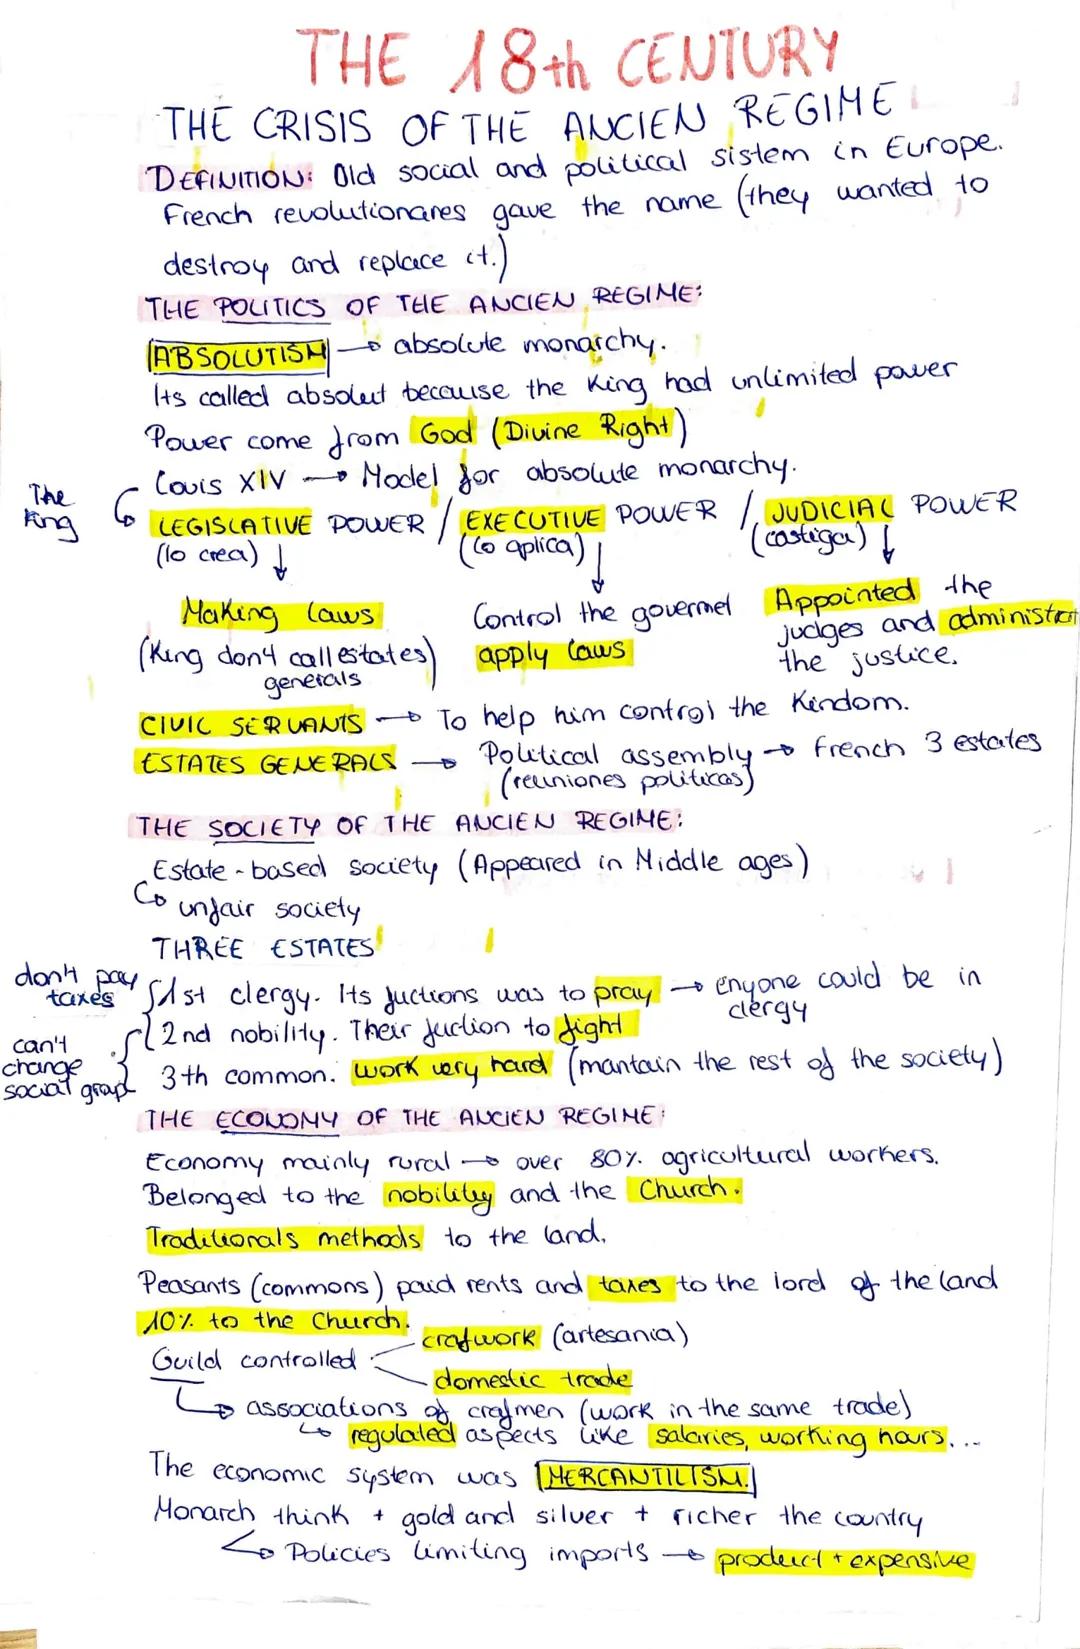 THE 18th CENTURY
THE CRISIS OF THE ANCIEN REGIME
DEFINITION: Old social and political sistem in Europe.
French revolutionares gave the name (they wanted to
destroy and replace it.)
THE POLITICS OF THE ANCIEN REGIME:
ABSOLUTISM → absolute monarchy.
Its called absolut because the King had unlimited power
Power come from God (Divine Right)
Louis XIV → Model for absolute monarchy.
The King
LEGISLATIVE POWER / EXECUTIVE POWER / JUDICIAL POWER
(lo crea) ↓ (lo aplica) ↓ (castiga) ↓
Making laws Control the govermel Appointed the
(King don't call estates generals) apply laws judges and administrat
the justice.
CIVIC SERVANTS → To help him control the Kindom.
ESTATES GENERALS → Political assembly → French 3 estates
(reuniones politicas)
THE SOCIETY OF THE ANCIEN REGIME:
Estate-based society (Appeared in Middle ages)
↳ unfair society
THREE ESTATES
don't pay taxes
1st clergy. Its fuctions was to pray → enyone could be in clergy
2nd nobility. Their fuction to fight
can't change social group
3th common. work very hard (mantain the rest of the society)
THE ECONOMY OF THE ANCIEN REGIME:
Economy mainly rural → over 80% agricultural workers.
Belonged to the nobility and the Church.
Traditionals methods to the land.
Peasants (commons) paid rents and taxes to the lord of the land
10% to the Church.
Guild controlled crafwork (artesania)
domestic trade
↳ associations of crafmen (work in the same trade)
↳ regulated aspects like salaries, working hours...
The economic system was MERCANTILISM.
Monarch think + gold and silver + richer the country
↳ Policies limiting imports → product + expensive